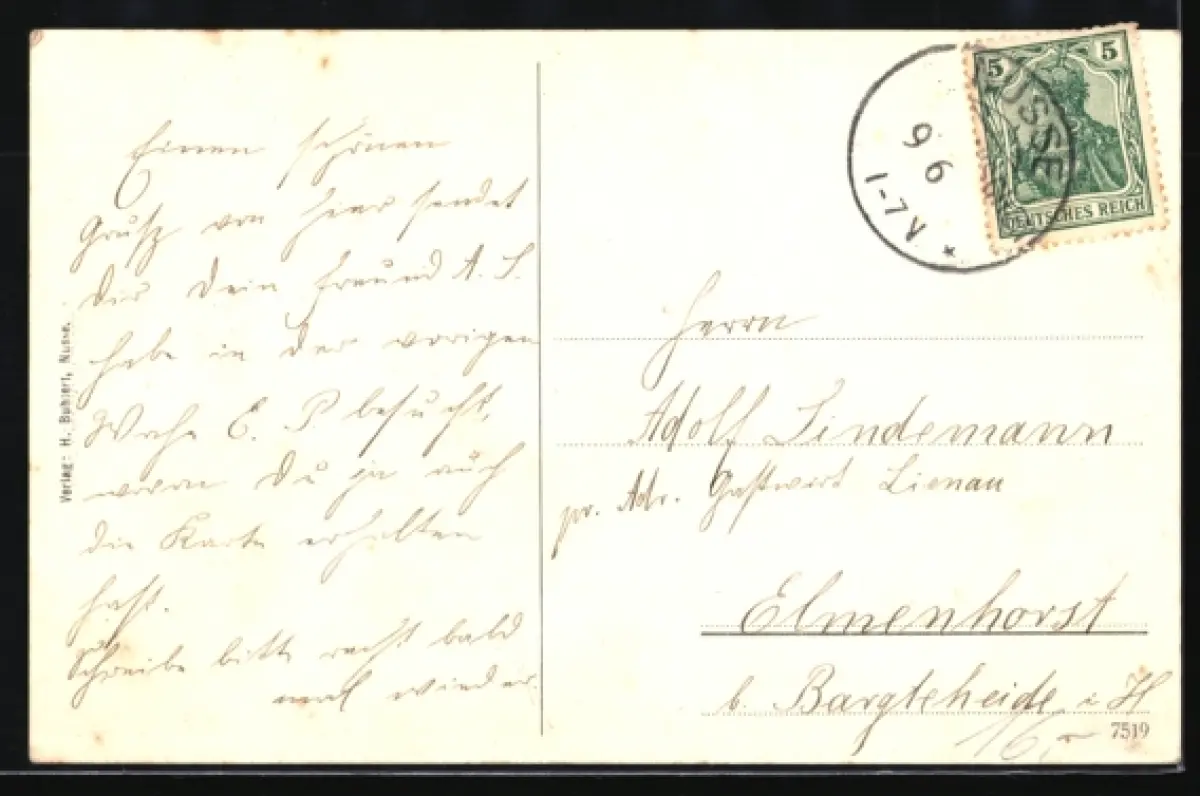 Einen schönen
Grusz von hier sendet
Dir Dein Freund A. S.
habe in der vorigen
Woche E. P. besucht,
wovon Du ja auch
die Karte erhalten
hast.
Schreibe bitte recht bald
mal wieder.
Verlag: H. Buhlert, Nusse.
5 5
DEUTSCHES REICH
NUSSE
9 6
1-7 V
*
Herrn
Adolf Lindemann
pr. Adr. Gastwirt Lienau
Elmenhorst
b. Bargteheide i. H
7519